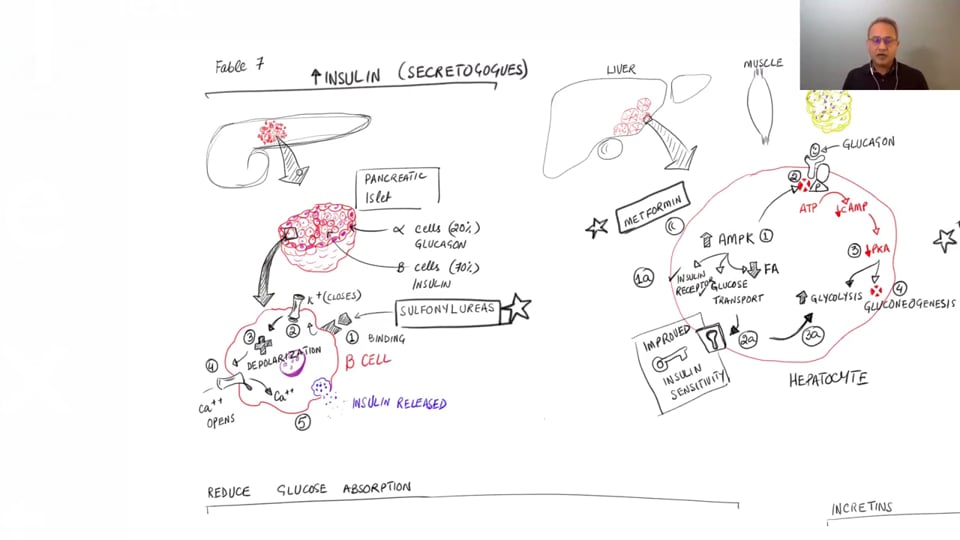 Fable 7
↑INSULIN (SECRETOGOGUES)
PANCREATIC
Islet
α cells (20%)
GLUCAGON
B cells (70%)
INSULIN
K+(CLOSES)
SULFONYLUREAS
1 BINDING
2
3
DEPOLARIZATION
B CELL
4
Ca++
OPENS
Ca++
INSULIN RELEASED
5
LIVER
MUSCLE
GLUCAGON
2
P
ATP
↓CAMP
METFORMIN
↑ AMPK 1
3 ↓PKA
1a
INSULIN
RECEPTOR
GLUCOSE
TRANSPORT
↓ FA
↑ GLYCOLYSIS
4
GLUCONEOGENESIS
IMPROVED
INSULIN
SENSITIVITY
2a
3a
HEPATOCYTE
REDUCE GLUCOSE ABSORPTION
INCRETINS